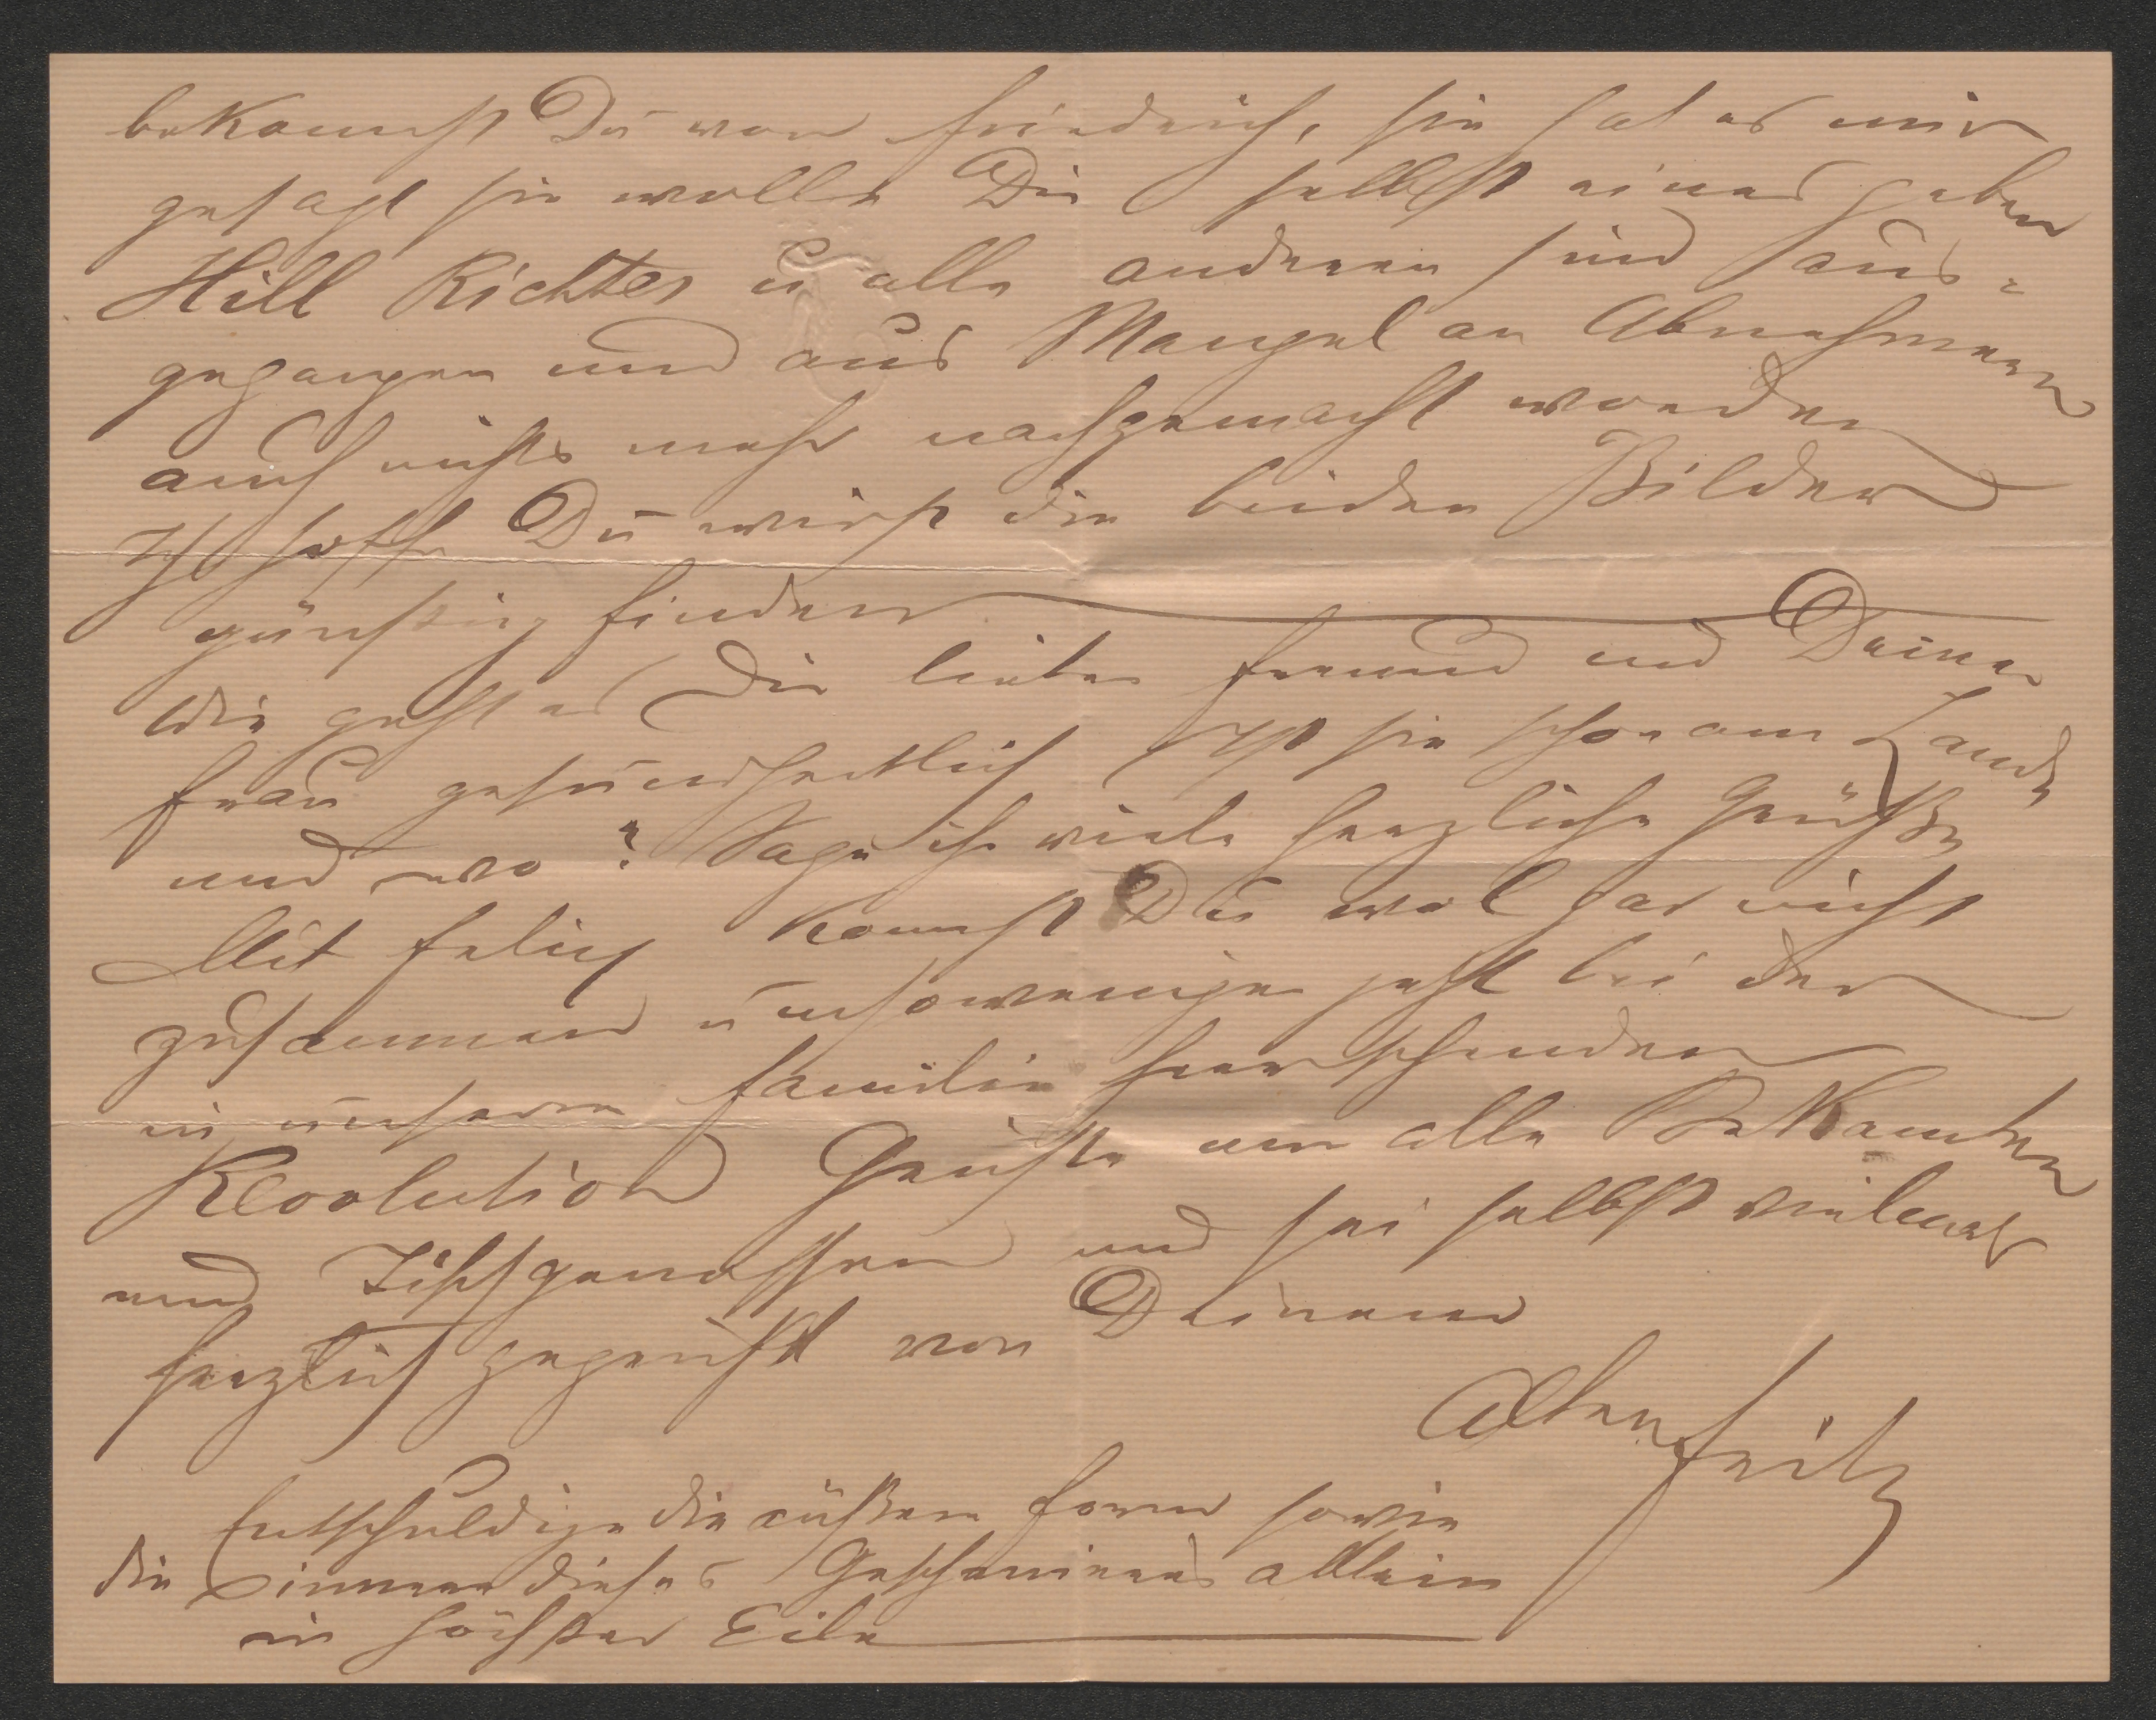 bekommst Du von Friedrich, sie hat es mir
gesagt sie wolle Dir selbst eines geben
Hill Richter u alle anderen sind aus=
gegangen und aus Mangel an Abnehmern
auch nichts mehr nachgemacht worden
Ich hoffe Du wirst die beiden Bilder
günstig finden
Wie geht es Dir lieber Freund und Deiner
Frau gesundheitlich Ist sie schon am Lande
und wo? Sage ihr viele herzliche Grüße
Mit Felix kommst Du wol gar nicht
zusammen umsoweniger jetzt bei der
in unserer Familie herrschenden
Revolution Grüße mir alle Bekannten
und Tischgenossen und sei selbst vielmals
herzlich gegrüßt von Deinem
Alten Fritz
Entschuldige die äußere Form sowie
die innere dieses Geschmieres allein
in höchster Eile